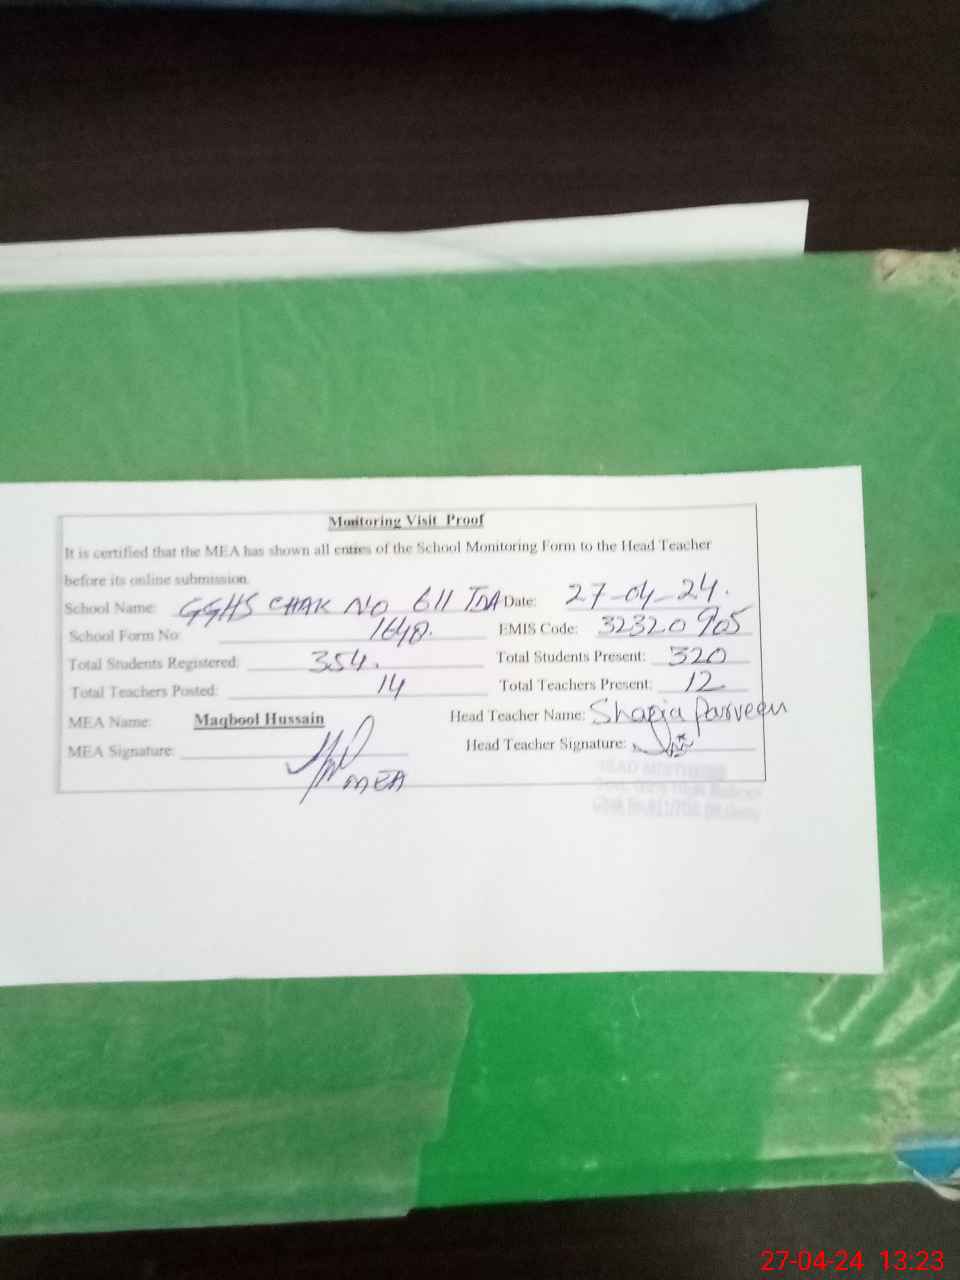 Monitoring Visit Proof
It is certified that the MEA has shown all enties of the School Monitoring Form to the Head Teacher
before its online submission.
School Name: GGHS CHAK NO 611 TDA Date: 27-04-24.
School Form No: 1648. EMIS Code: 32320905
Total Students Registered: 354. Total Students Present: 320
Total Teachers Posted: 14 Total Teachers Present: 12
MEA Name: Maqbool Hussain Head Teacher Name: Shazia Parveen
MEA Signature: Head Teacher Signature:
MEA
HEAD MISTRESS
27-04-24 13:23